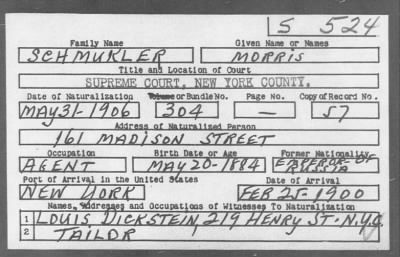 S 524
Family Name Given Name or Names
SCHMUKLER MORRIS
Title and Location of Court
SUPREME COURT, NEW YORK COUNTY.
Date of Naturalization Volume or Bundle No. Page No. Copy of Record No.
MAY 31-1906 304 — 57
Address of Naturalized Person
161 MADISON STREET
Occupation Birth Date or Age Former Nationality
AGENT MAY 20-1884 EMPEROR-OF RUSSIA
Port of Arrival in the United States Date of Arrival
NEW YORK FEB 25-1900
Names, Addresses and Occupations of Witnesses To Naturalization
1 LOUIS DICKSTEIN, 219 HENRY ST. N.Y.C.
2 TAILOR